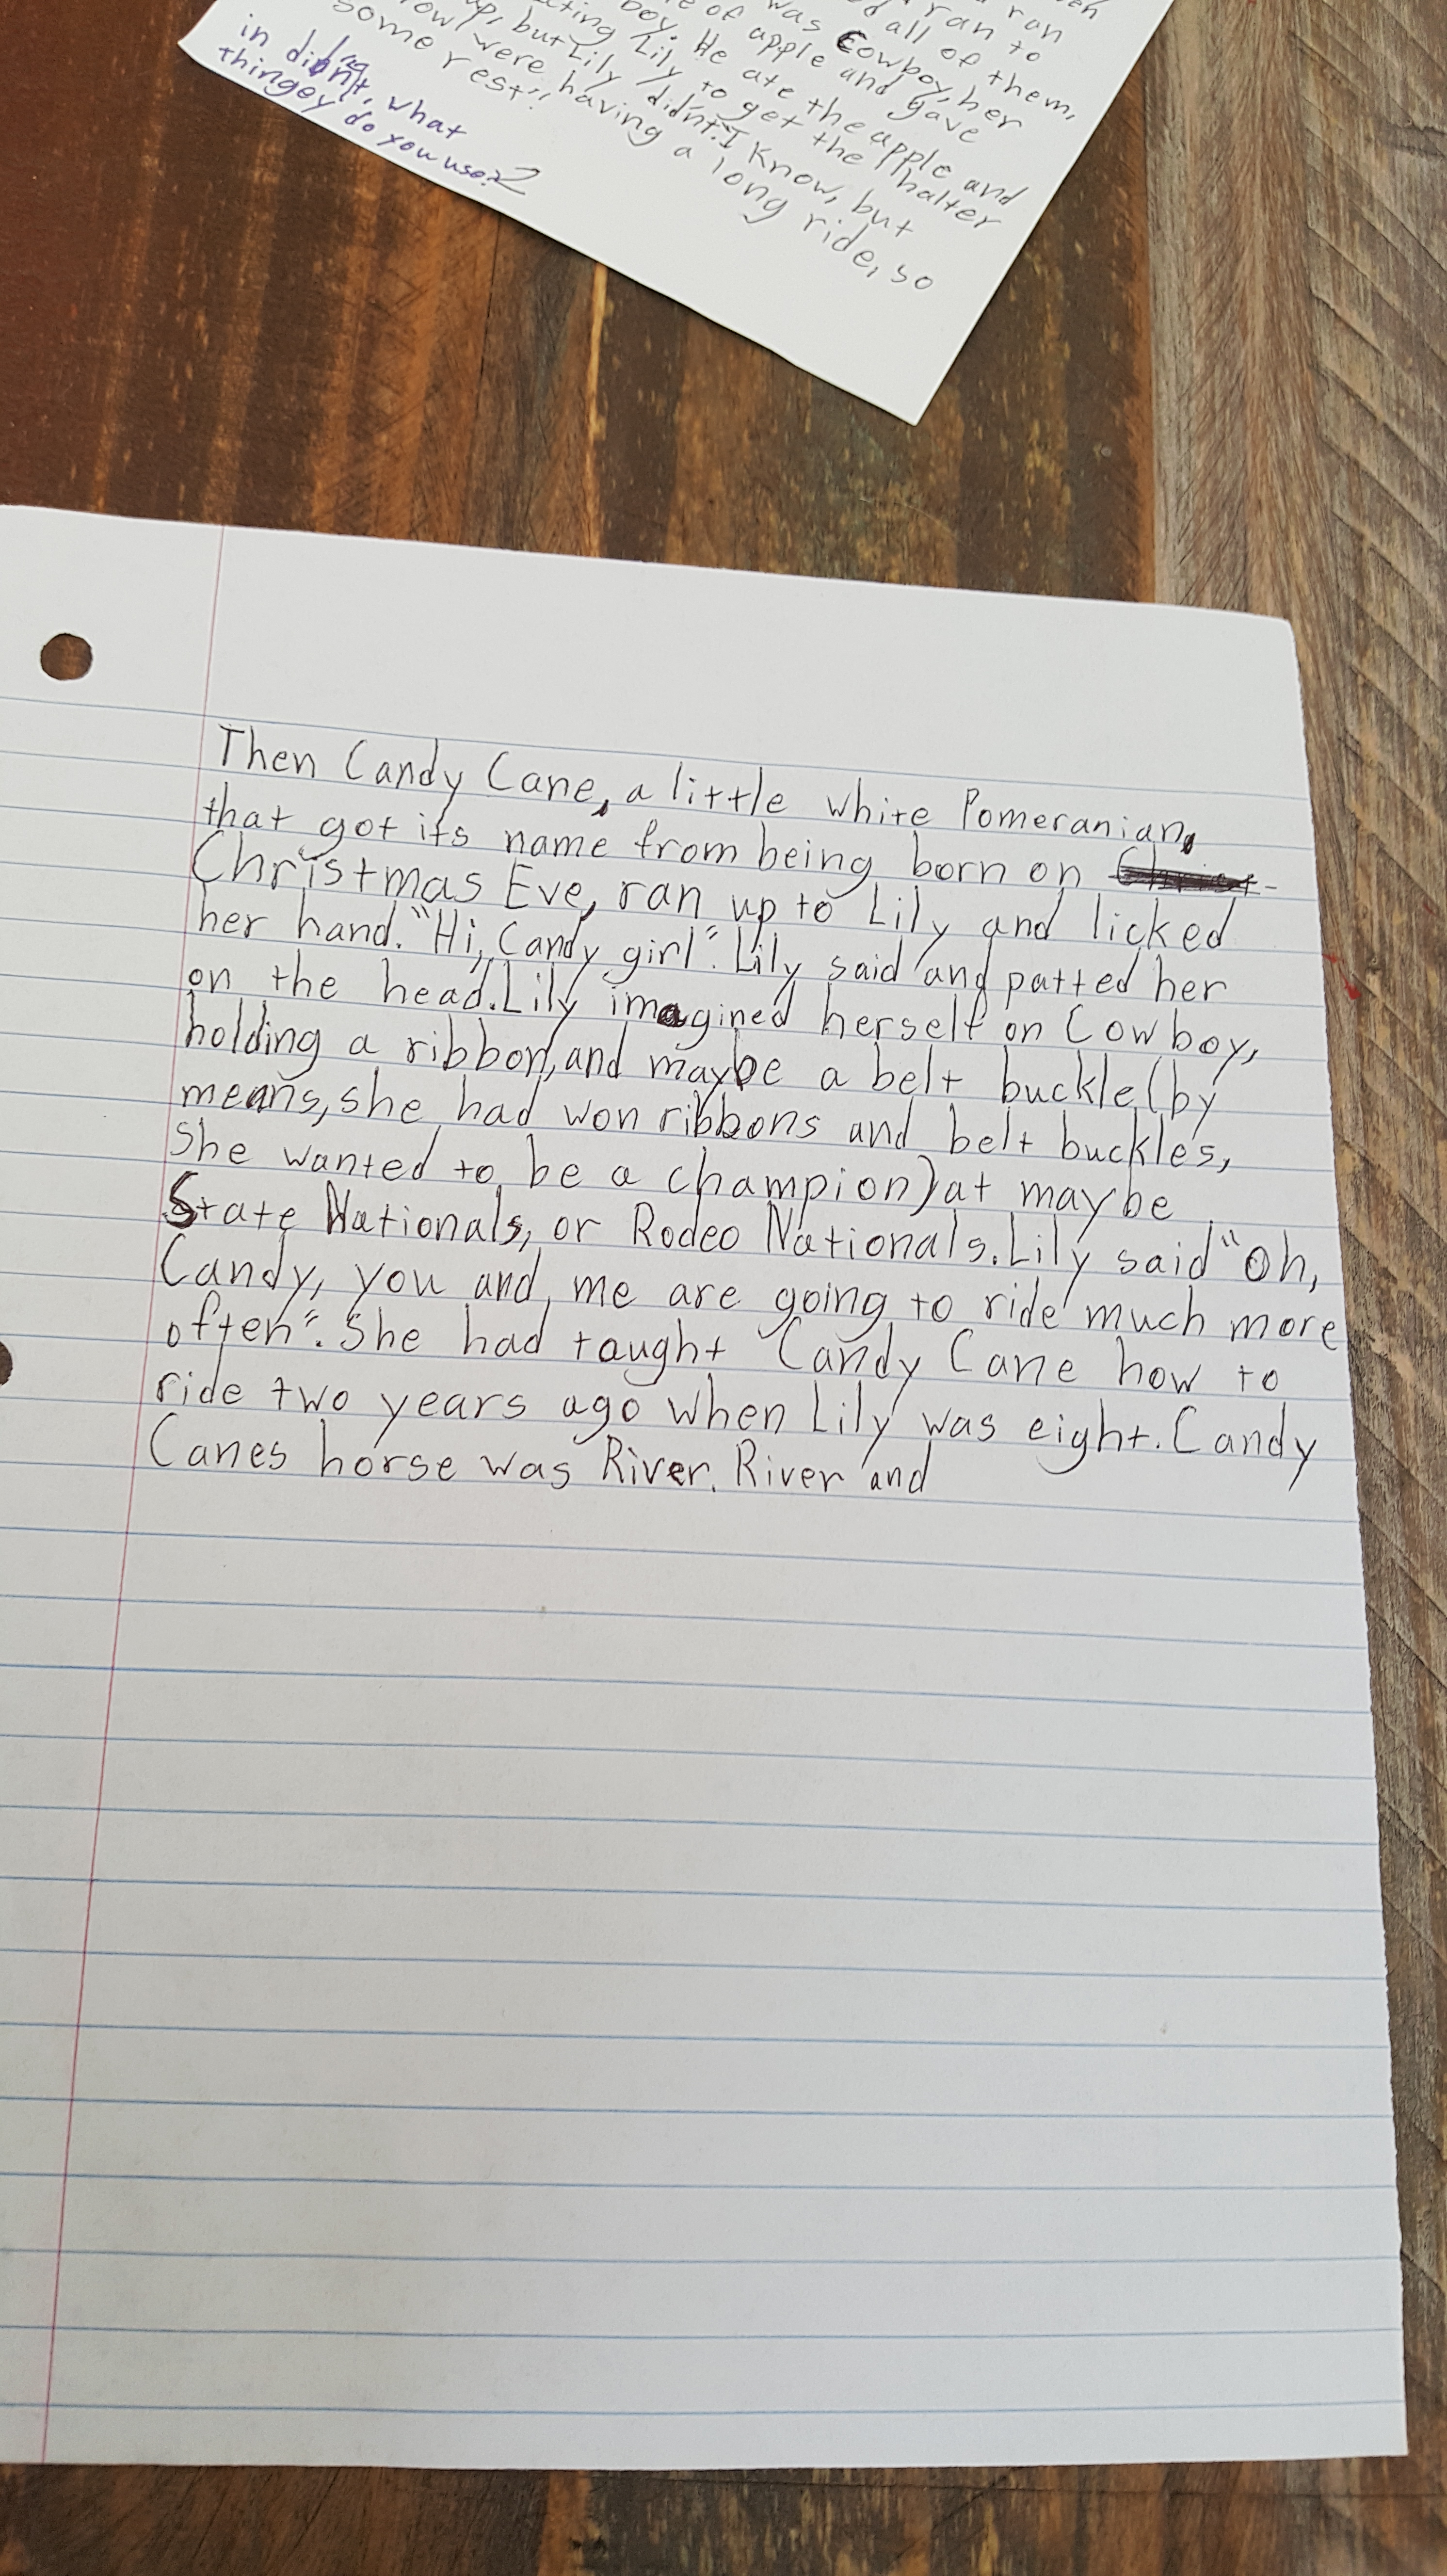 ran
ran to
all of them,
was Cowboy, her
of apple and gave
boy. He ate the apple and
Lily to get the halter
up, but Lily didn't. I know, but
were having a long ride, so
some rest"
in didn't, what
thingey do you use?
Then Candy Cane, a little white Pomeranian,
that got its name from being born on
Christmas Eve, ran up to Lily and licked
her hand. "Hi, Candy girl". Lily said and patted her
on the head. Lily imagined herself on Cowboy,
holding a ribbon, and maybe a belt buckle (by
means, she had won ribbons and belt buckles,
She wanted to be a champion) at maybe
State Nationals, or Rodeo Nationals. Lily said "Oh,
Candy, you and me are going to ride much more
often". She had taught Candy Cane how to
ride two years ago when Lily was eight. Candy
Canes horse was River. River and